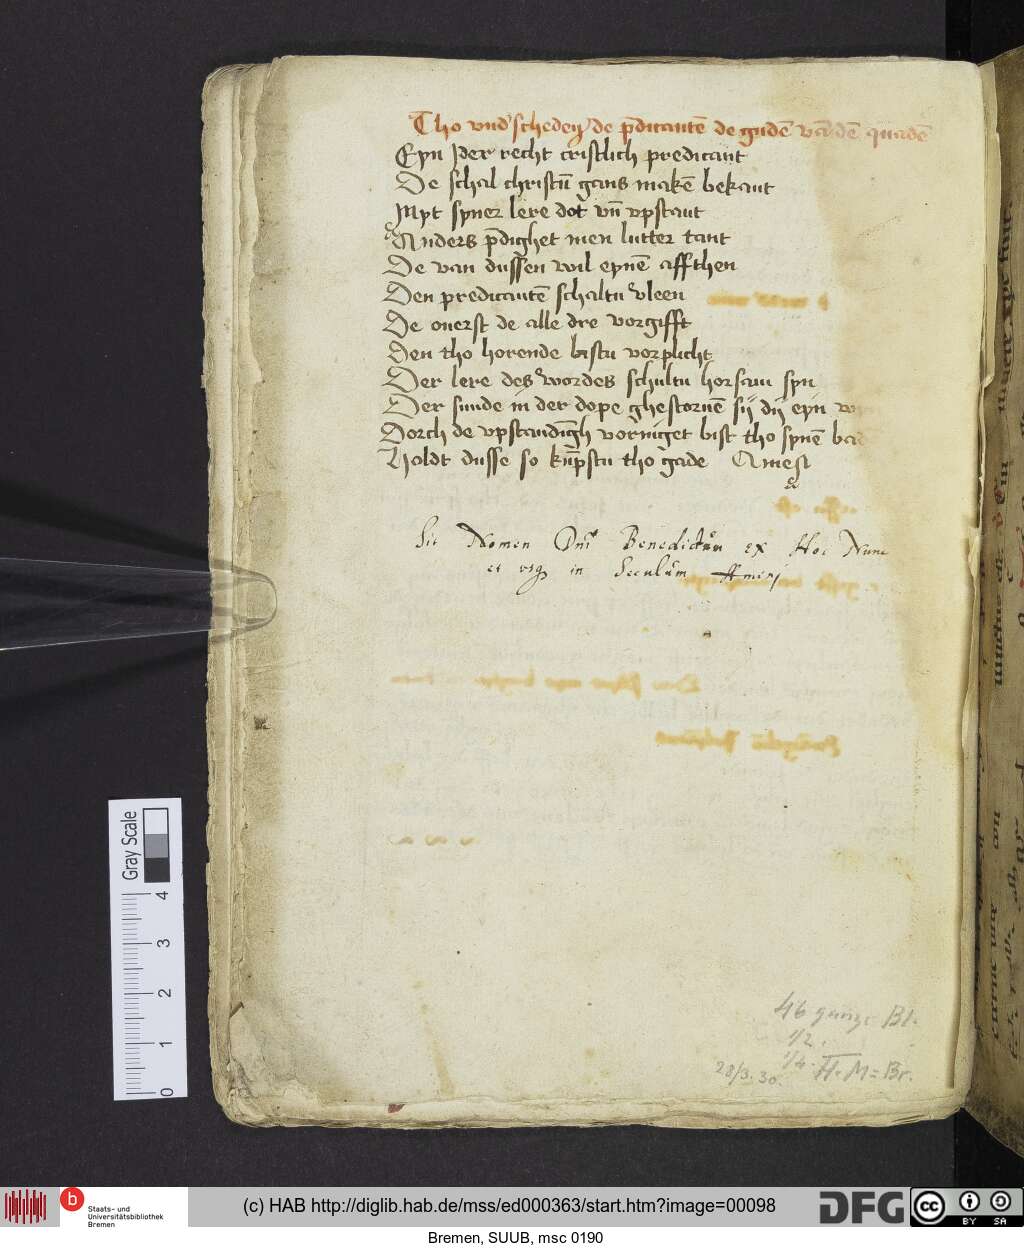 Tho vnd'schedeṇ de p̄dicantē de gudē vā dē quadē
Eyn Jder recht cristlich predicant
De schal christū gans makē bekant
Myt syner lere dot vn̄ vpstant
Anders p̄dighet men lutter tant
De van dussen wil eynē affthen
Den predicantē schaltu vleen
De ouerst de alle dre vorgifft
Den tho horende bistu vorplicht
Der lere des wordes schultu horsam syn
Der sunde in der dope ghestoruē sij dij eyn
Dorch de vpstandigh vorniget bist tho synē
Holdt dusse so kūpstu tho gade Amen
Sit Nomen Dnī Benedictūm ex Hoc Nunc
et vsq in Seculūm Amen
46 ganze Bl.
1/2.
1/4. H. M=Br.
28/3. 30.
Gray Scale
4
3
2
1
0
b Staats- und
Universitätsbibliothek
Bremen
(c) HAB http://diglib.hab.de/mss/ed000363/start.htm?image=00098
DFG
cc BY SA
Bremen, SUUB, msc 0190